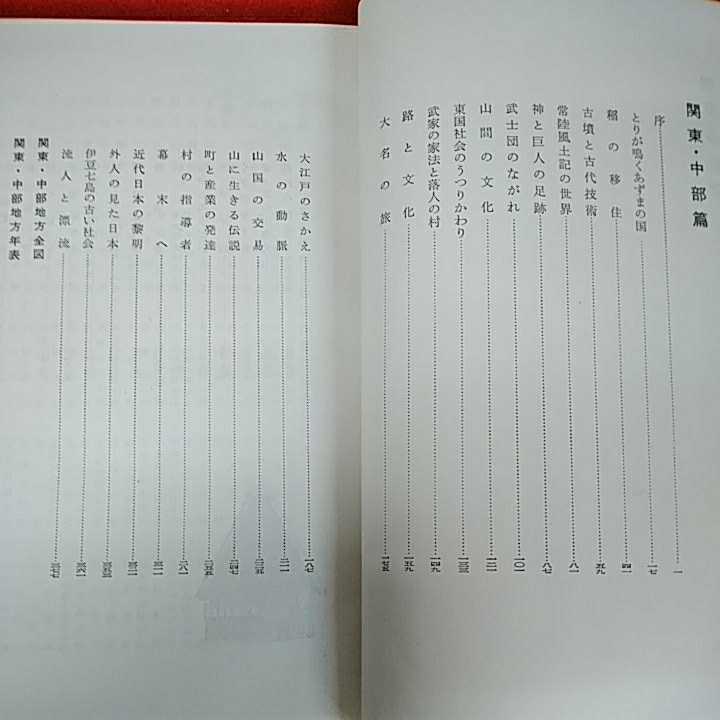 関東・中部篇
序……一
とりが鳴くあずまの国……一七
稲の移住……四一
古墳と古代技術……五九
常陸風土記の世界……八一
神と巨人の足跡……八七
武士団のながれ……一〇一
山間の文化……一二一
東国社会のうつりかわり……一三三
武家の家法と落人の村……一四九
路と文化……一五九
大名の旅……一七五
大江戸のさかえ……一八七
水の動脈……二一一
山国の交易……二三五
山に生きる伝説……二四七
町と産業の発達……
村の指導者……二八一
幕末へ……
近代日本の黎明……
外人の見た日本……
伊豆七島の古い社会……三六一
流人と漂流……三七七
関東・中部地方全図
関東・中部地方年表